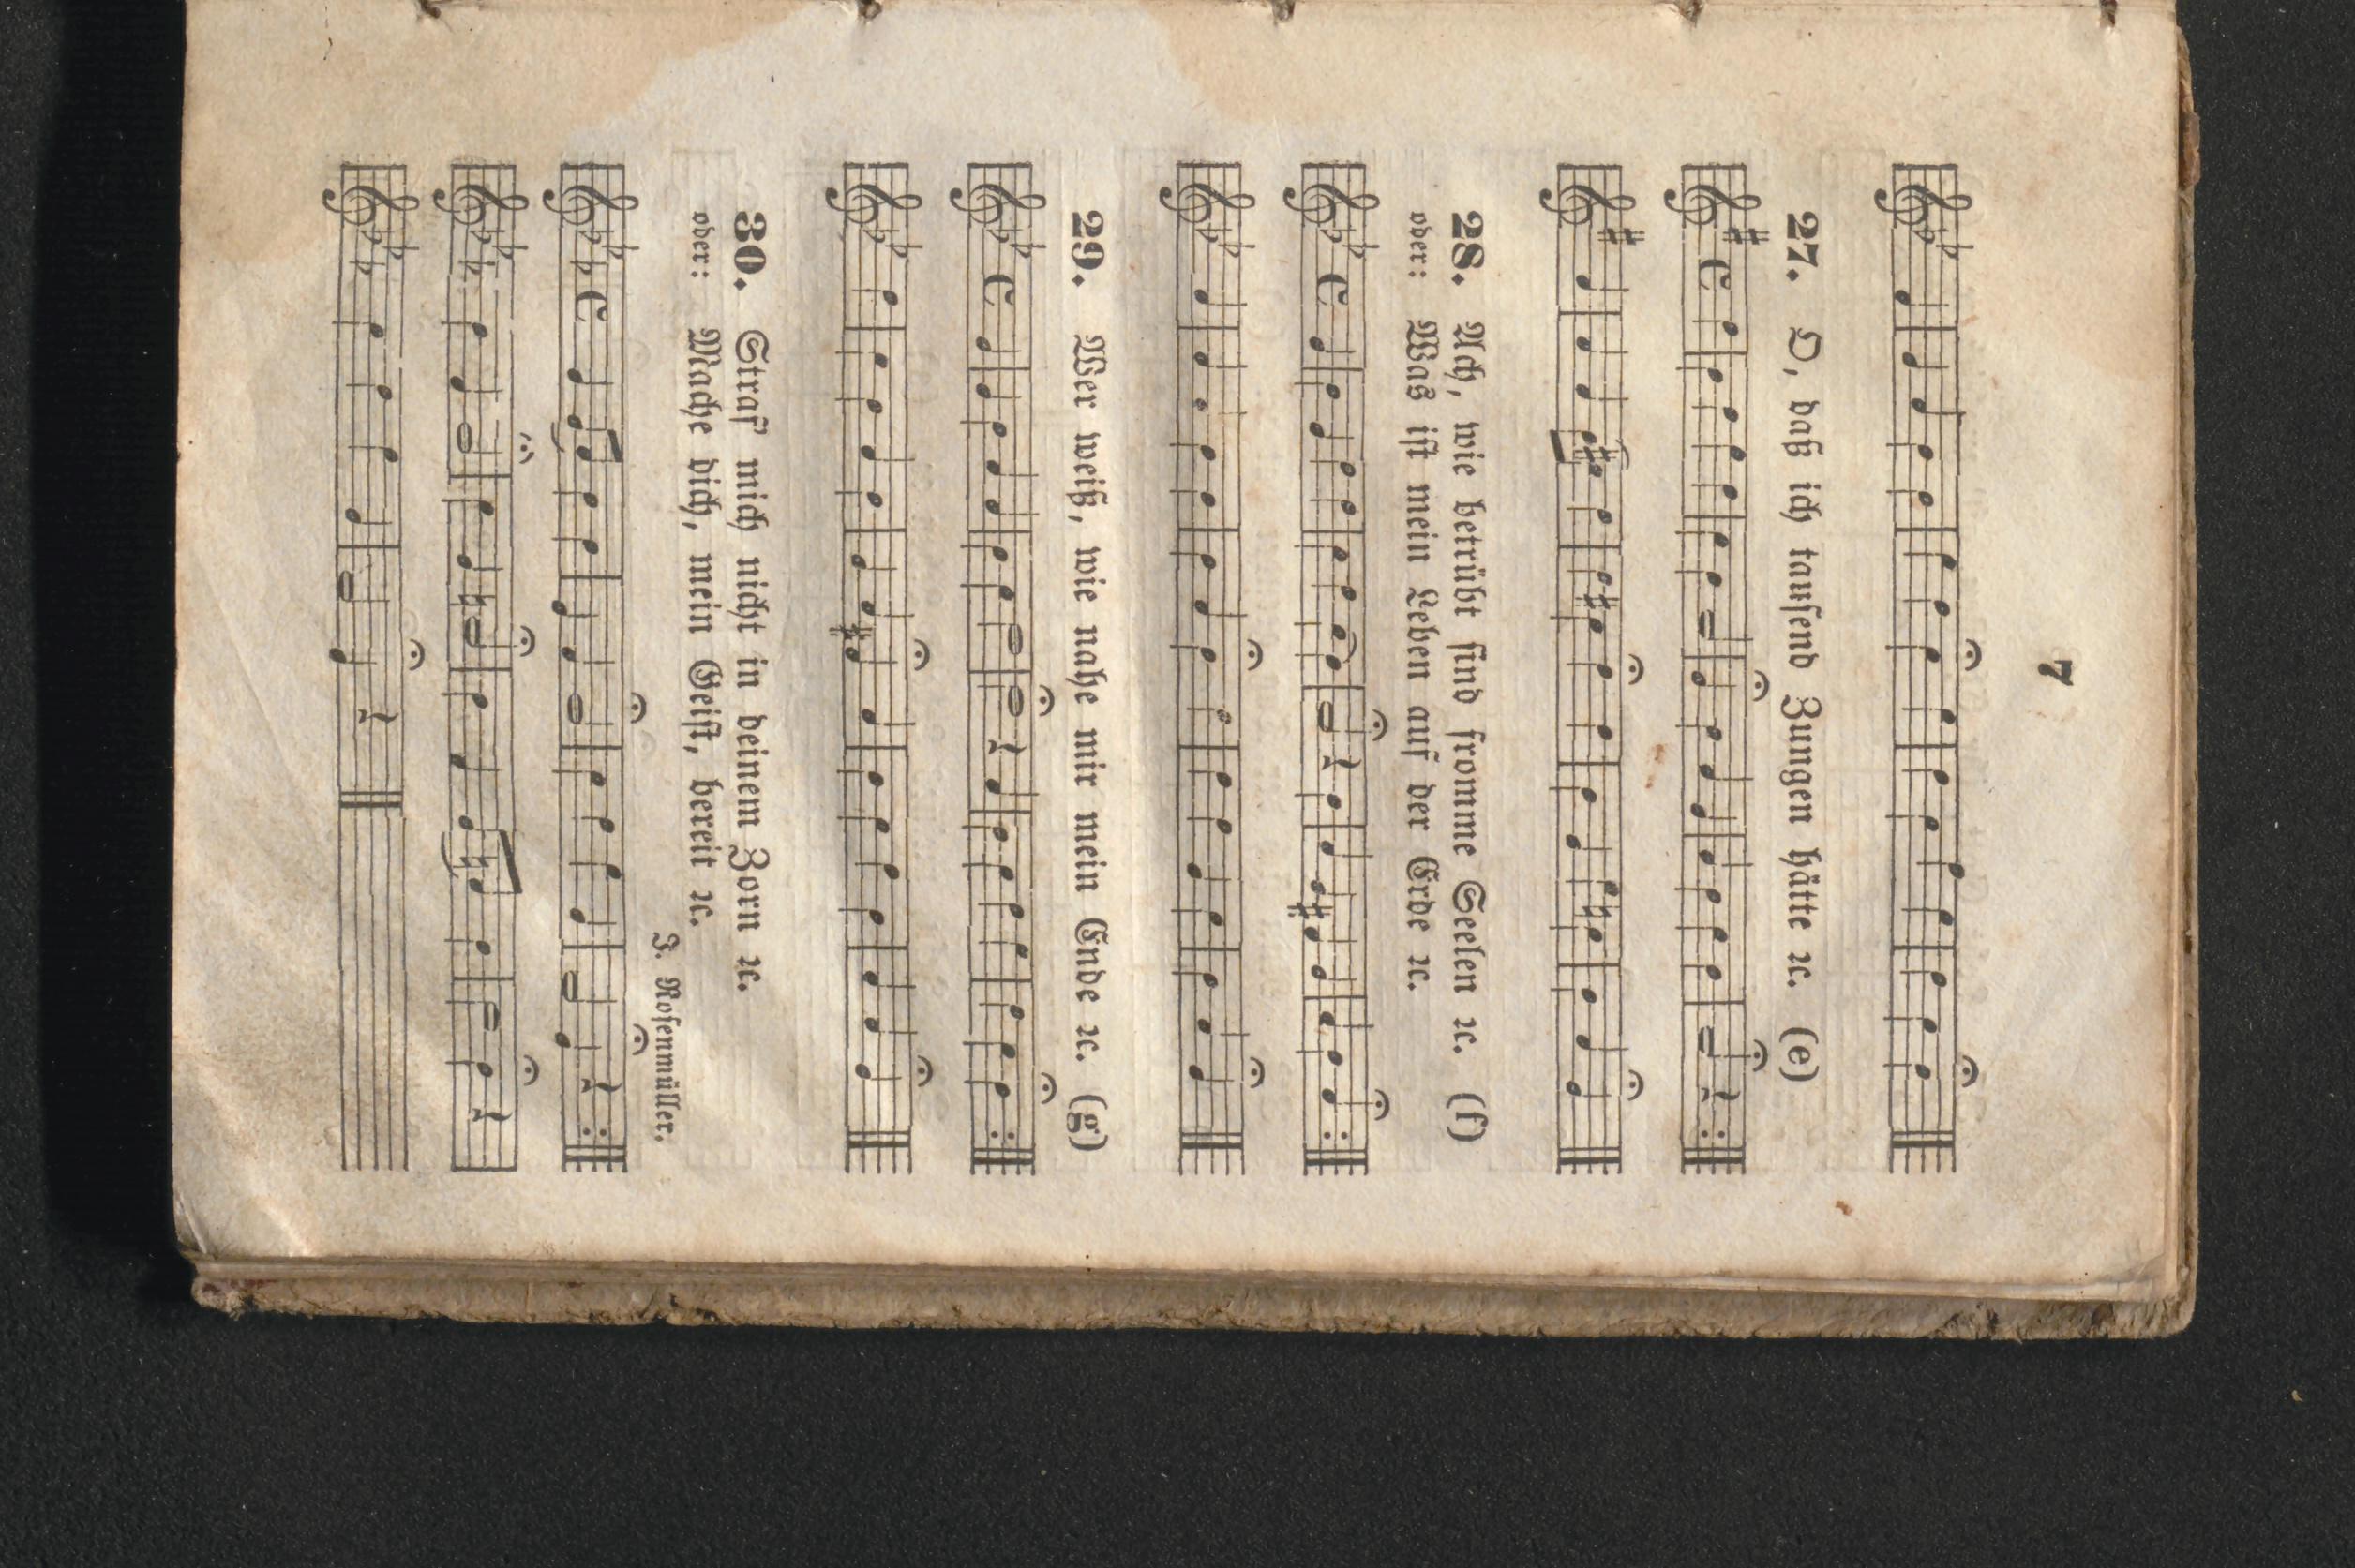 7
27. O, daß ich tausend Zungen hätte ꝛc. (e)
28. Ach, wie betrübt sind fromme Seelen ꝛc. (f)
oder: Was ist mein Leben auf der Erde ꝛc.
29. Wer weiß, wie nahe mir mein Ende ꝛc. (g)
30. Straf' mich nicht in deinem Zorn ꝛc.
oder: Mache dich, mein Geist, bereit ꝛc.
J. Rosenmüller.